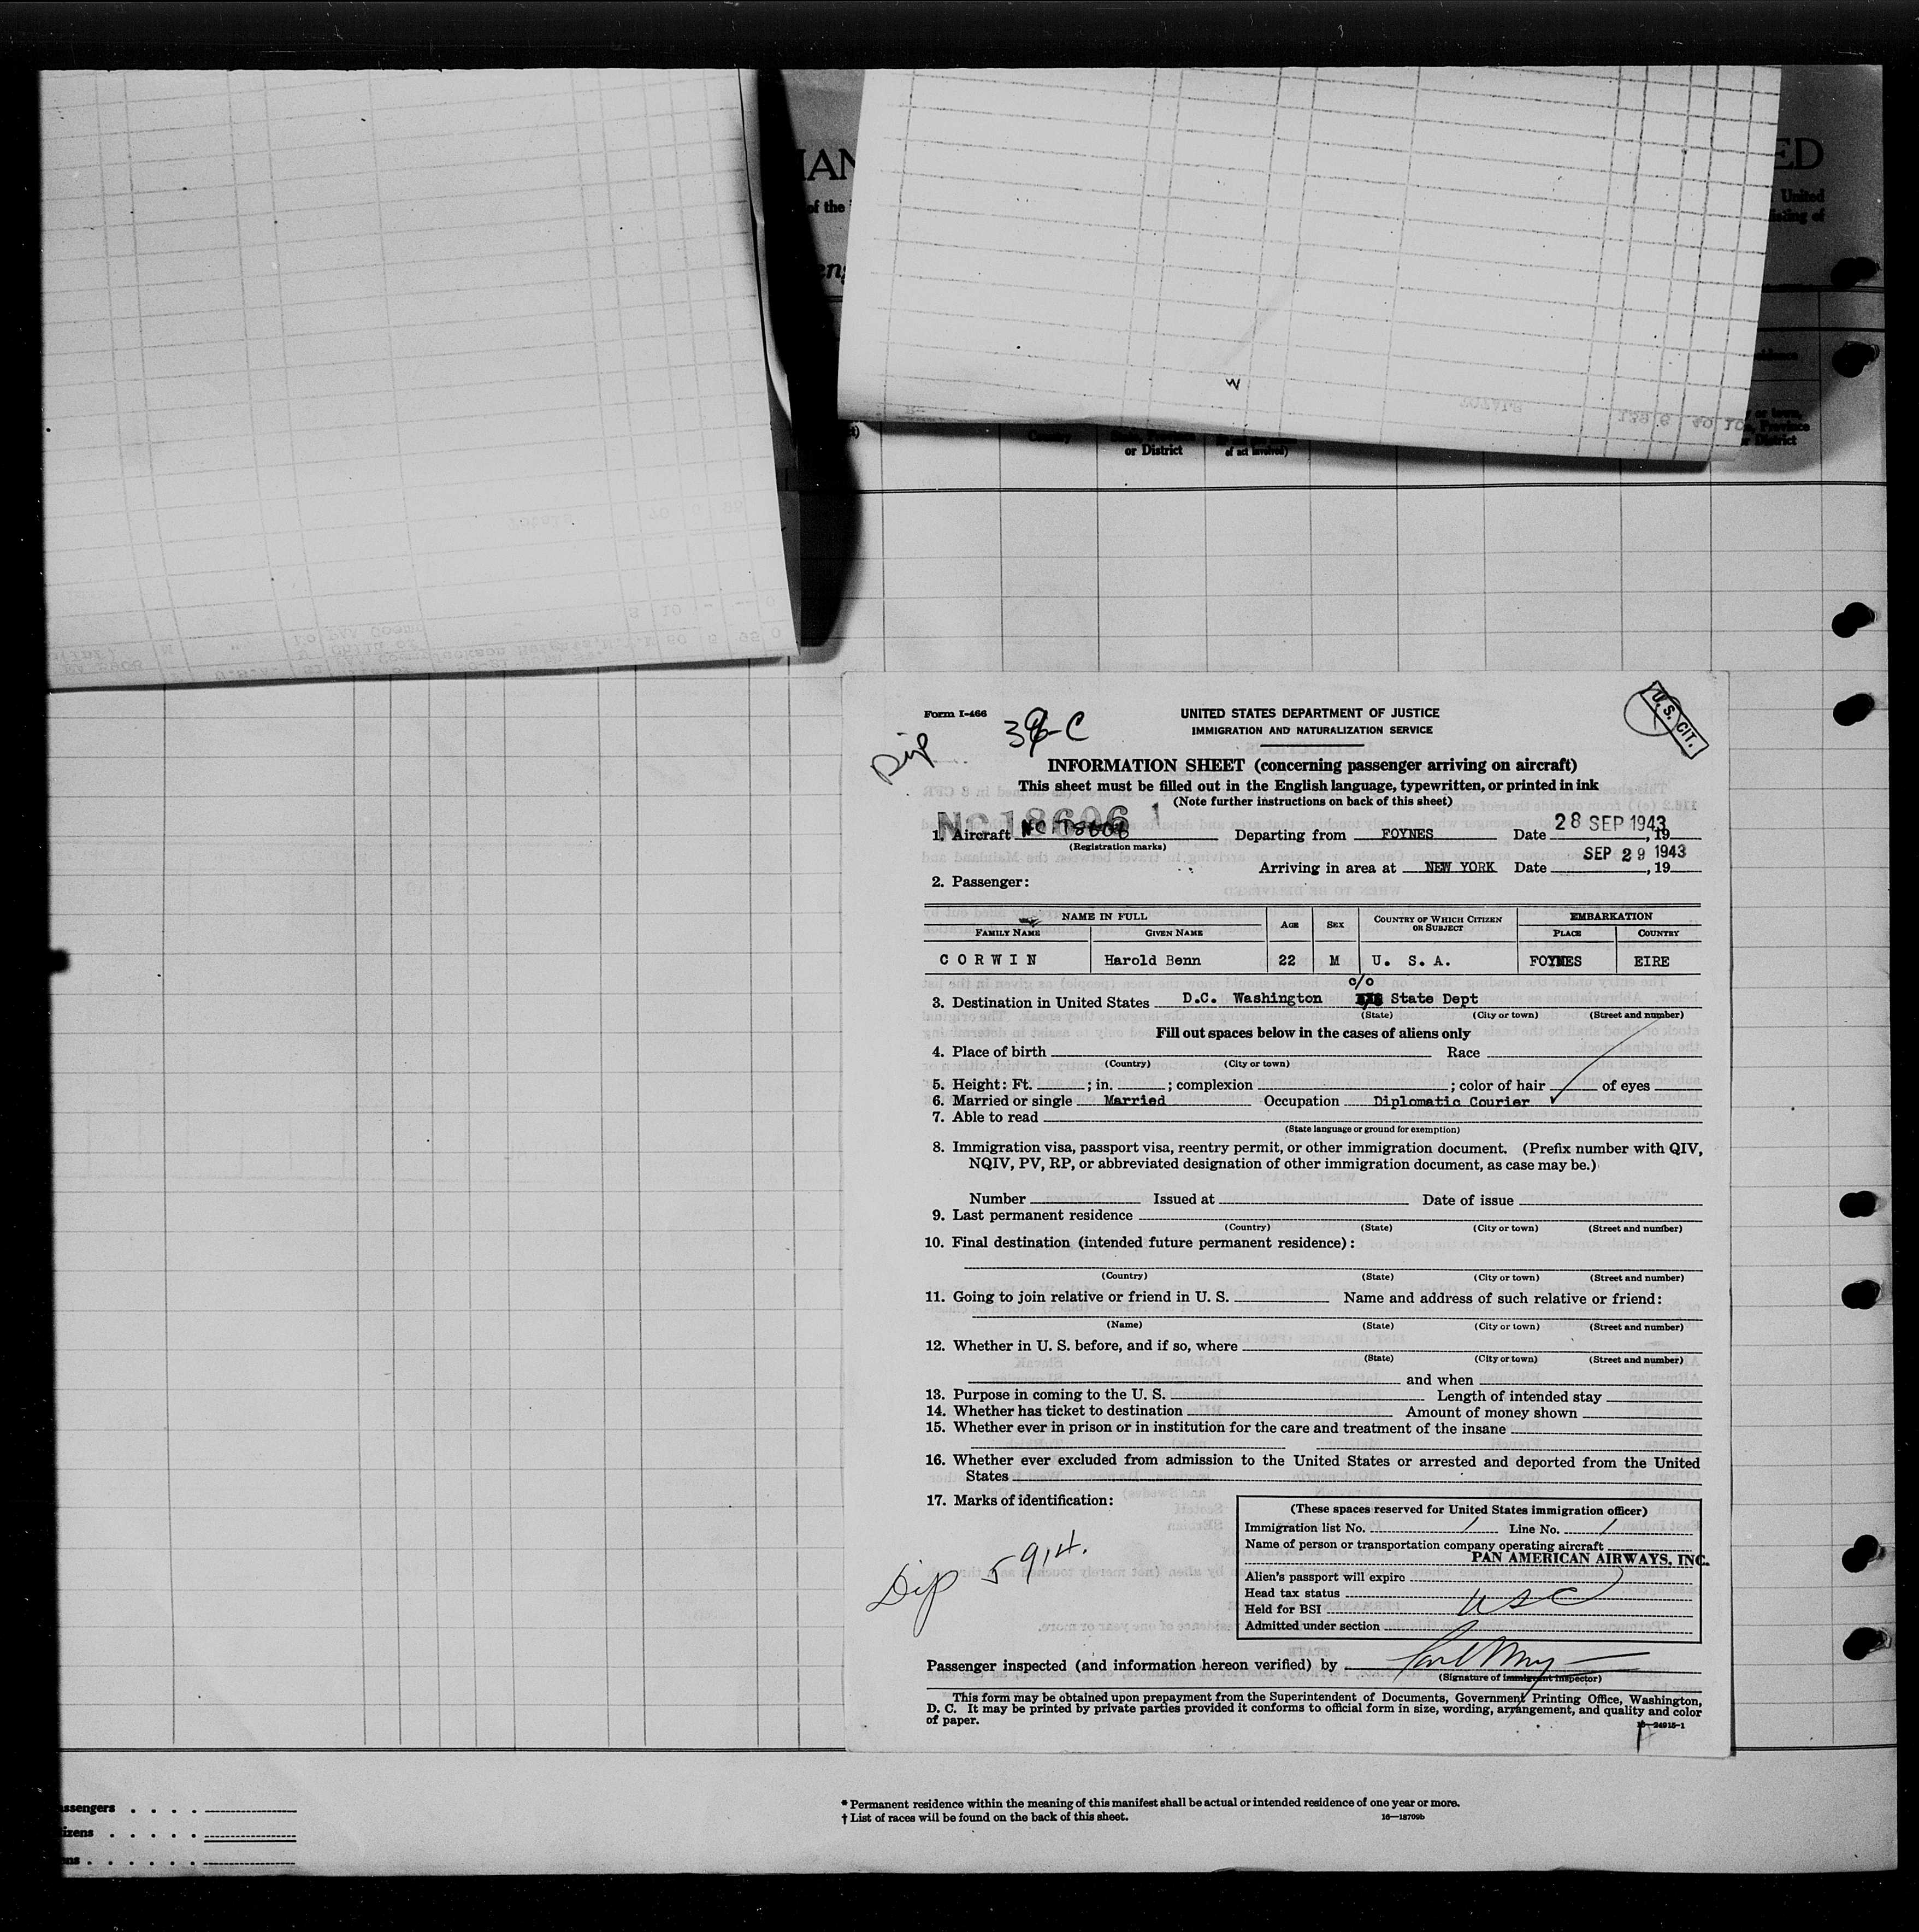 IAN
ED
of the
United
listing of
or District
of act involved)
or town,
Province
or District
Form I-466
Dip
UNITED STATES DEPARTMENT OF JUSTICE
IMMIGRATION AND NATURALIZATION SERVICE
U.S. CIT.
INFORMATION SHEET (concerning passenger arriving on aircraft)
This sheet must be filled out in the English language, typewritten, or printed in ink
(Note further instructions on back of this sheet)
NC 18606 1
1. Aircraft Departing from FOYNES Date 28 SEP 1943, 19
(Registration marks)
SEP 29 1943
Arriving in area at NEW YORK Date , 19
2. Passenger:
NAME IN FULL AGE SEX COUNTRY OF WHICH CITIZEN OR SUBJECT EMBARKATION
FAMILY NAME GIVEN NAME PLACE COUNTRY
CORWIN Harold Benn 22 M U. S. A. FOYNES EIRE
c/o
3. Destination in United States D.C. Washington State Dept
(State) (City or town) (Street and number)
Fill out spaces below in the cases of aliens only
4. Place of birth Race
(Country) (City or town)
5. Height: Ft. ; in. ; complexion ; color of hair of eyes
6. Married or single Married Occupation Diplomatic Courier
7. Able to read
(State language or ground for exemption)
8. Immigration visa, passport visa, reentry permit, or other immigration document. (Prefix number with QIV,
NQIV, PV, RP, or abbreviated designation of other immigration document, as case may be.)
Number Issued at Date of issue
9. Last permanent residence
(Country) (State) (City or town) (Street and number)
10. Final destination (intended future permanent residence):
(Country) (State) (City or town) (Street and number)
11. Going to join relative or friend in U. S. Name and address of such relative or friend:
(Name) (State) (City or town) (Street and number)
12. Whether in U. S. before, and if so, where
(State) (City or town) (Street and number)
and when
13. Purpose in coming to the U. S. Length of intended stay
14. Whether has ticket to destination Amount of money shown
15. Whether ever in prison or in institution for the care and treatment of the insane
16. Whether ever excluded from admission to the United States or arrested and deported from the United
States
17. Marks of identification:
(These spaces reserved for United States immigration officer)
Immigration list No. 1 Line No. 1
Name of person or transportation company operating aircraft
PAN AMERICAN AIRWAYS, INC.
Alien's passport will expire
Head tax status
Held for BSI USC
Admitted under section
Dip 5914.
Passenger inspected (and information hereon verified) by
(Signature of immigrant inspector)
This form may be obtained upon prepayment from the Superintendent of Documents, Government Printing Office, Washington,
D. C. It may be printed by private parties provided it conforms to official form in size, wording, arrangement, and quality and color
of paper.
16—24915-1
assengers
izens
ns
* Permanent residence within the meaning of this manifest shall be actual or intended residence of one year or more.
† List of races will be found on the back of this sheet.
16—18709b